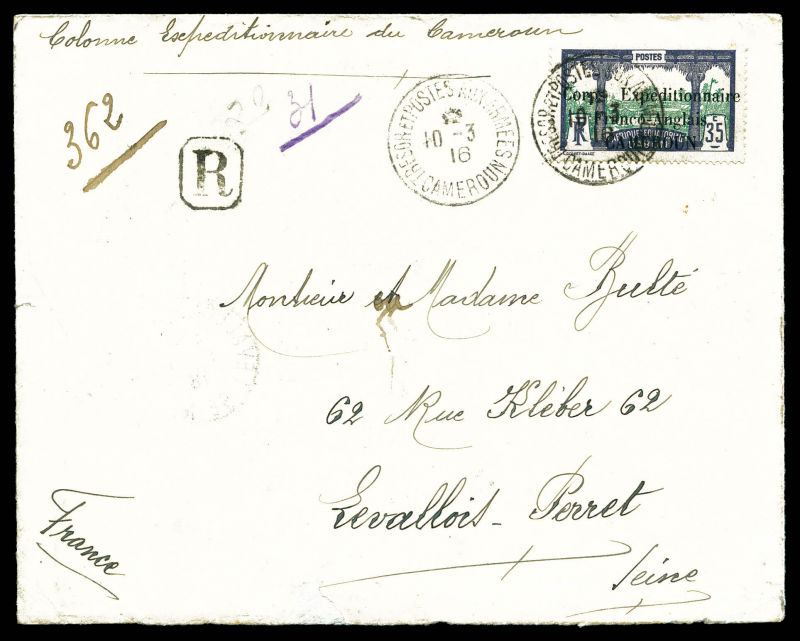 Colonne Expeditionnaire du Cameroun
362
31
R
TRESOR ET POSTES AUX ARMEES
10 -3
16
CAMEROUN
POSTES
Corps Expéditionnaire
Franco-Anglais
CAMEROUN
RF
35 c
TRESOR ET POSTES AUX
10 3
16
CAMEROUN
Monsieur et Madame Bulté
62 Rue Kléber 62
Levallois-Perret
Seine
France